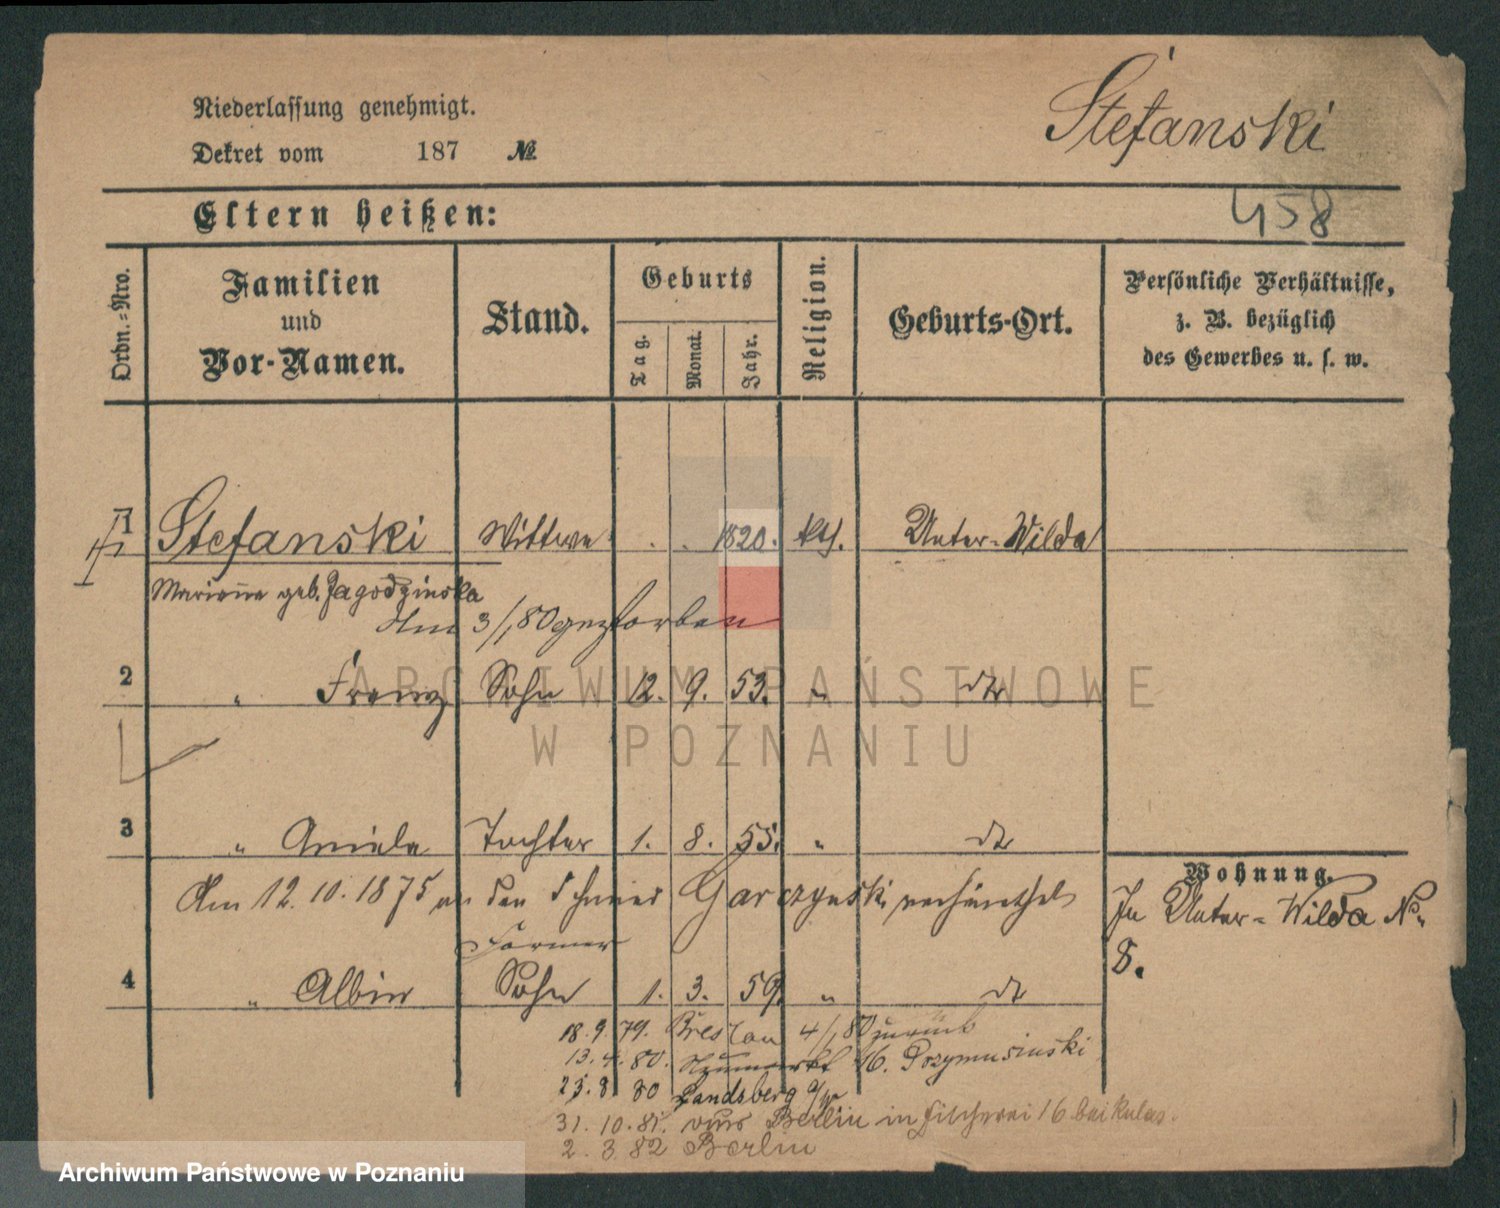 Niederlassung genehmigt.
Dekret vom 187 №
Stefanski
Eltern heißen:
458
Ordn.-Nro.
Familien und Vor-Namen.
Stand.
Geburts
Tag.
Monat.
Jahr.
Religion.
Geburts-Ort.
Persönliche Verhältnisse,
z. B. bezüglich
des Gewerbes u. s. w.
1 Stefanski Wittwe . . 1820. kth. Unter-Wilda
Marianne geb. Jagodzinska
Am 3/1, 80 gestorben
2 " Franz Sohn 12. 9. 53. " dto
ARCHIWUM PAŃSTWOWE
W POZNANIU
3 " Aniela Tochter 1. 8. 55. " dto
Wohnung.
Am 12.10.1875 an den Schmied Garczynski verheirathet
In Unter-Wilda No
8.
Former
4 " Albin Sohn 1. 3. 59. " dto
18. 9. 79. Breslau 4/1, 80 zurück
13. 4. 80. Neumarkt 16.
23. 8. 80 Landsberg a/W
31. 10. 81. aus Berlin in Fischerei 16 bei
2. 3. 82 Berlin
Archiwum Państwowe w Poznaniu